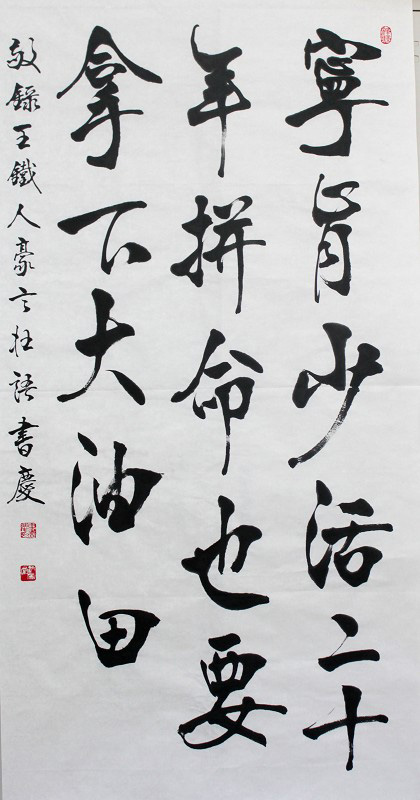 寧肯少活二十
年拼命也要
拿下大油田
敬錄王鐵人豪言壯語書慶